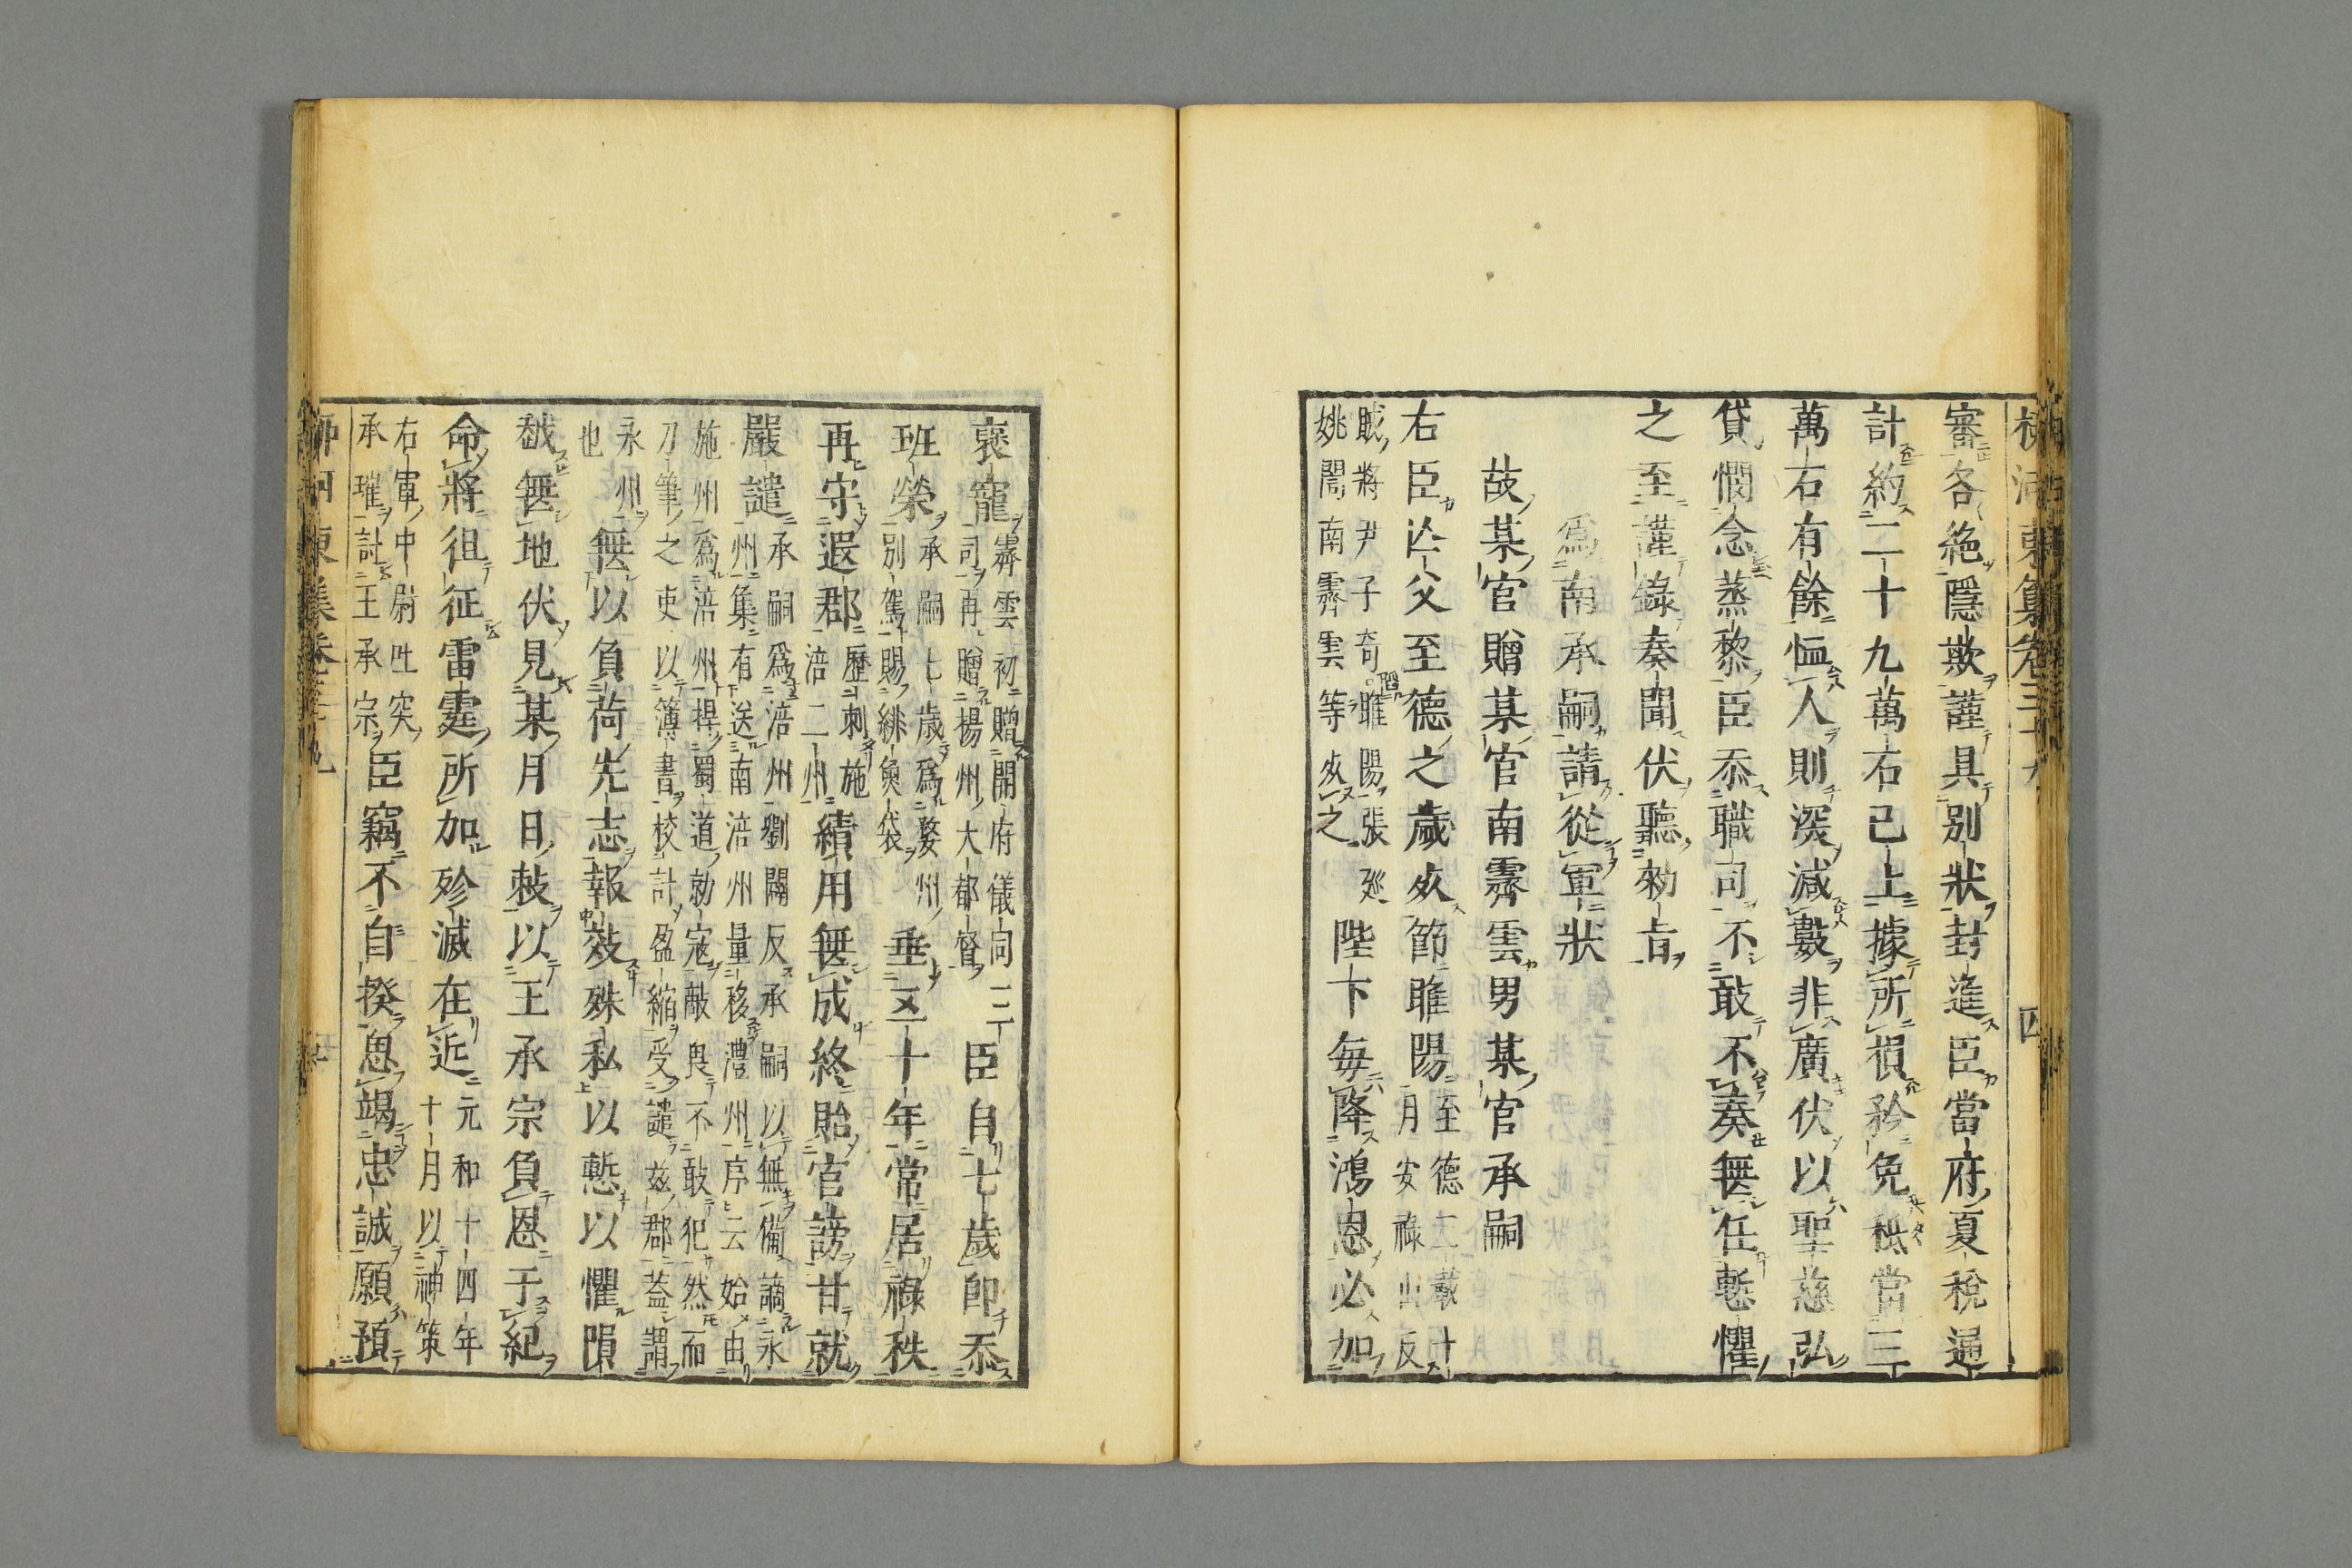 審各絶隱欺謹具別狀封進臣當府夏稅通
計約二十九萬石已上據所損矜免秪當三
萬石有餘恤人則深減數非廣伏以聖慈弘
貸憫念蒸黎臣忝職司不敢不奏無任慙懼
之至謹錄奏聞伏聽勑旨
爲南承嗣請從軍狀
故某官贈某官南霽雲男某官承嗣
右臣亾父至德之歲死節睢陽至德二載十月安祿山反
賊將尹子奇䧟睢陽張廵姚誾南霽雲等死之陛下每降鴻恩必加
褒寵霽雲初贈開府儀同三司再贈楊州大都督臣自七歲卽忝
班榮承嗣七歲爲婺州別駕賜緋魚袋垂五十年常居祿秩
再守遐郡歷刺施涪二州績用無成終貽官謗甘就
嚴譴承嗣爲涪州劉闢反承嗣以無備謫永州集有送南涪州量移澧州序云始由
施州爲涪州捍蜀道勍寇敵與不敢犯然而刀筆之吏以簿書校計盈縮受譴茲郡葢謂
永州也無以負荷先志報效殊私以慙以懼隕
越無地伏見某月日敕以王承宗負恩于紀
命將徂征雷霆所加殄滅在近元和十四年十月以神策
右軍中尉吐突承璀討王承宗臣竊不自揆思竭忠誠願預